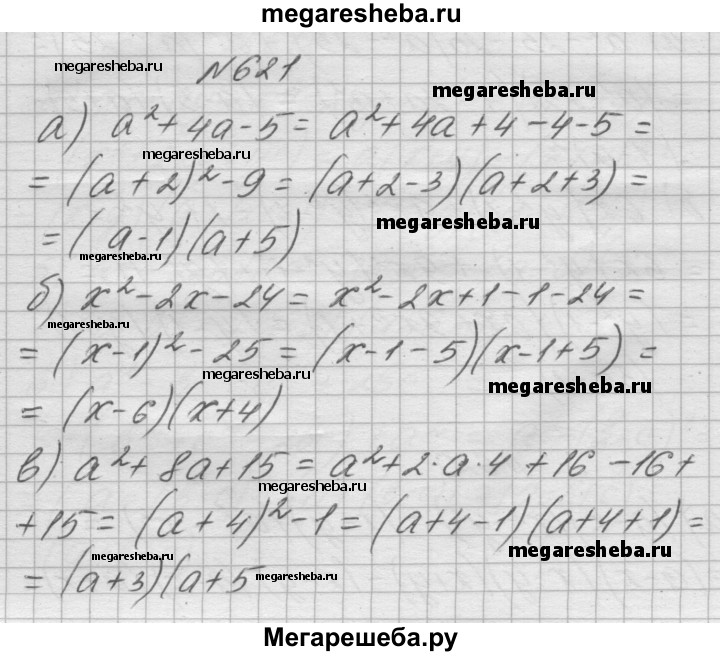 megaresheba.ru
megaresheba.ru
№621
megaresheba.ru
а) a²+4a-5= a²+4a+4-4-5=
megaresheba.ru
= (a+2)²-9= (a+2-3)(a+2+3)=
megaresheba.ru
=(a-1)(a+5)
megaresheba.ru
б) x²-2x-24= x²-2x+1-1-24=
megaresheba.ru
= (x-1)²-25= (x-1-5)(x-1+5)=
megaresheba.ru
megaresheba.ru
= (x-6)(x+4)
в) a²+8a+15= a²+2·a·4+16-16+
megaresheba.ru
+15= (a+4)²-1= (a+4-1)(a+4+1)=
megaresheba.ru
= (a+3)(a+5
megaresheba.ru
Мегарешеба.ру